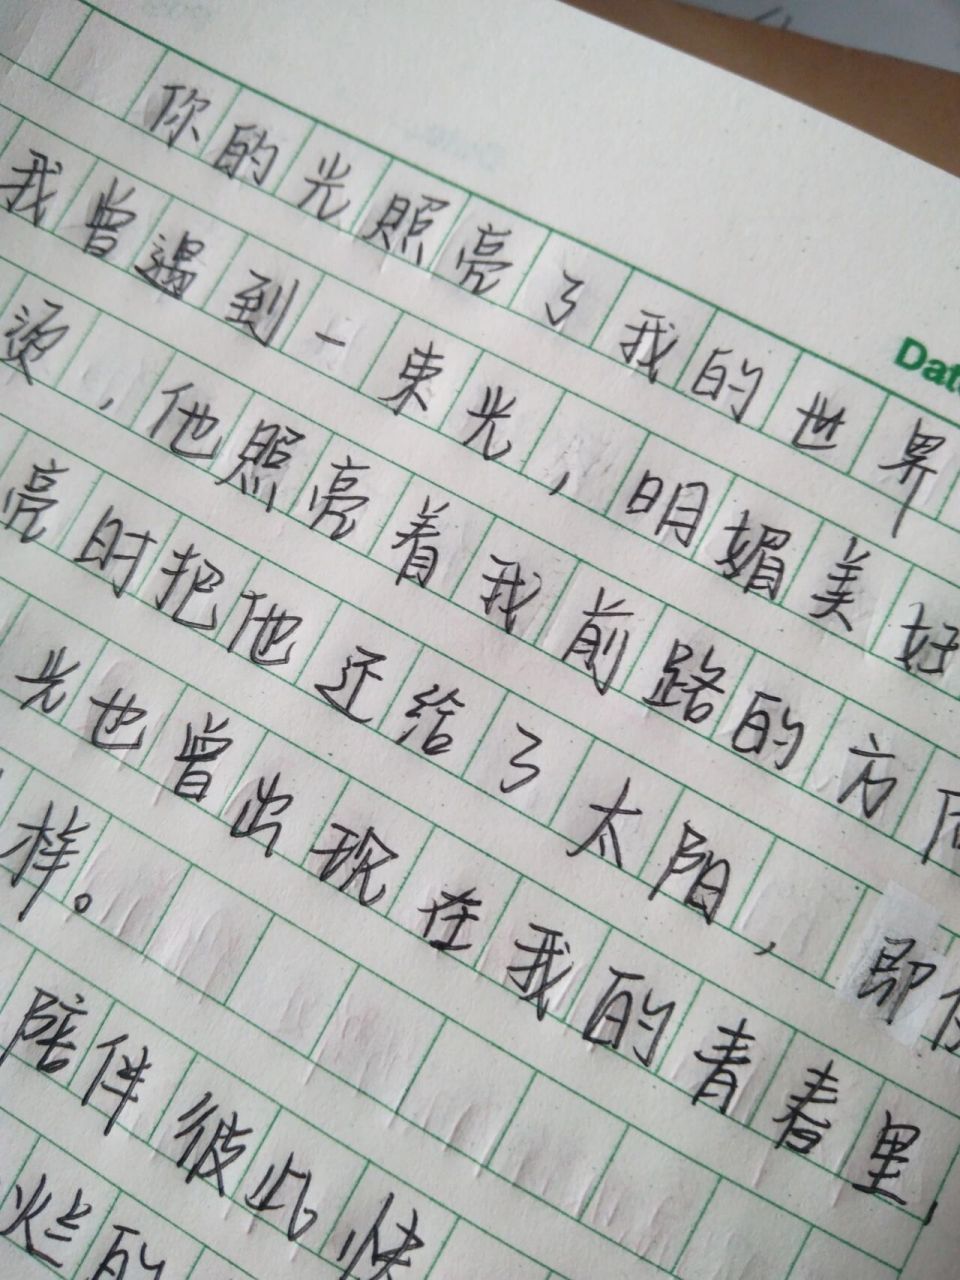 你的光照亮了我的世界
Date
我曾遇到一束光，明媚美好
烫，他照亮着我前路的方向
亮时把他还给了太阳，即使
光也曾出现在我的青春里，
样。
陪伴彼此快
烂的